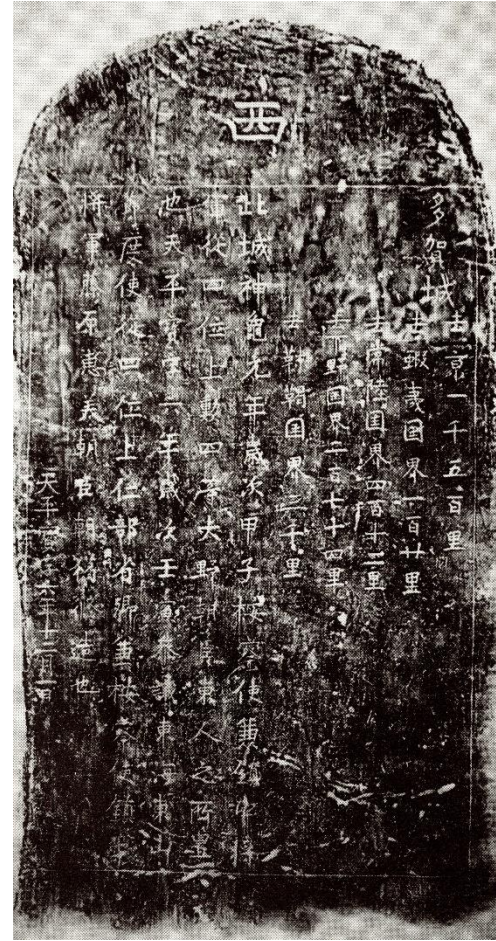 西
多賀城
去京一千五百里
去蝦夷国界一百廿里
去常陸国界四百十二里
去下野国界二百七十四里
去靺鞨国界三千里
此城神龜元年歳次甲子按察使兼鎮守将
軍從四位上勳四等大野朝臣東人之所置
也天平寶字六年歳次壬寅參議東海東山
節度使從四位上仁部省卿兼按察使鎮守
将軍藤原惠美朝臣朝獦修造也
天平寶字六年十二月一日